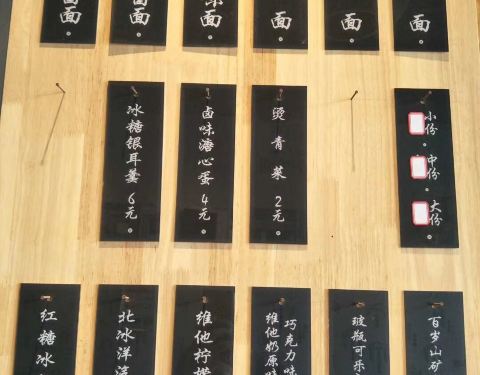 面面。
面面。
面面。
面。
面。
面。
冰糖银耳羹 6元。
卤味溏心蛋 4元。
烫青菜 2元。
小份。
中份。
大份。
红糖冰
北冰洋汽
维他柠檬
维他奶原味
巧克力味
玻瓶可乐
百岁山矿